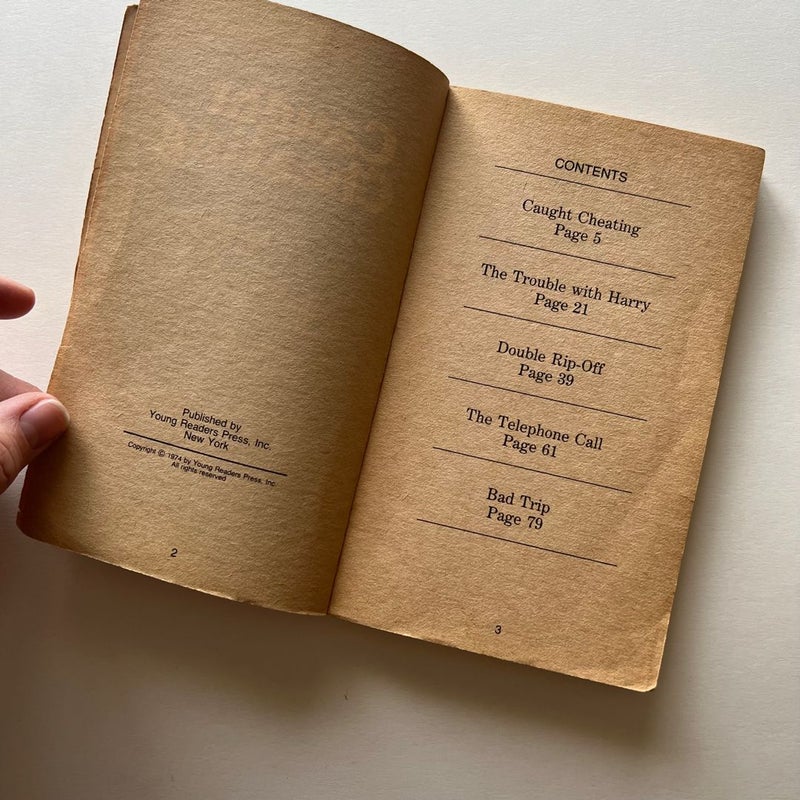 Published by
Young Readers Press, Inc.
New York
Copyright © 1974 by Young Readers Press, Inc.
All rights reserved
2
CONTENTS
Caught Cheating
Page 5
The Trouble with Harry
Page 21
Double Rip-Off
Page 39
The Telephone Call
Page 61
Bad Trip
Page 79
3